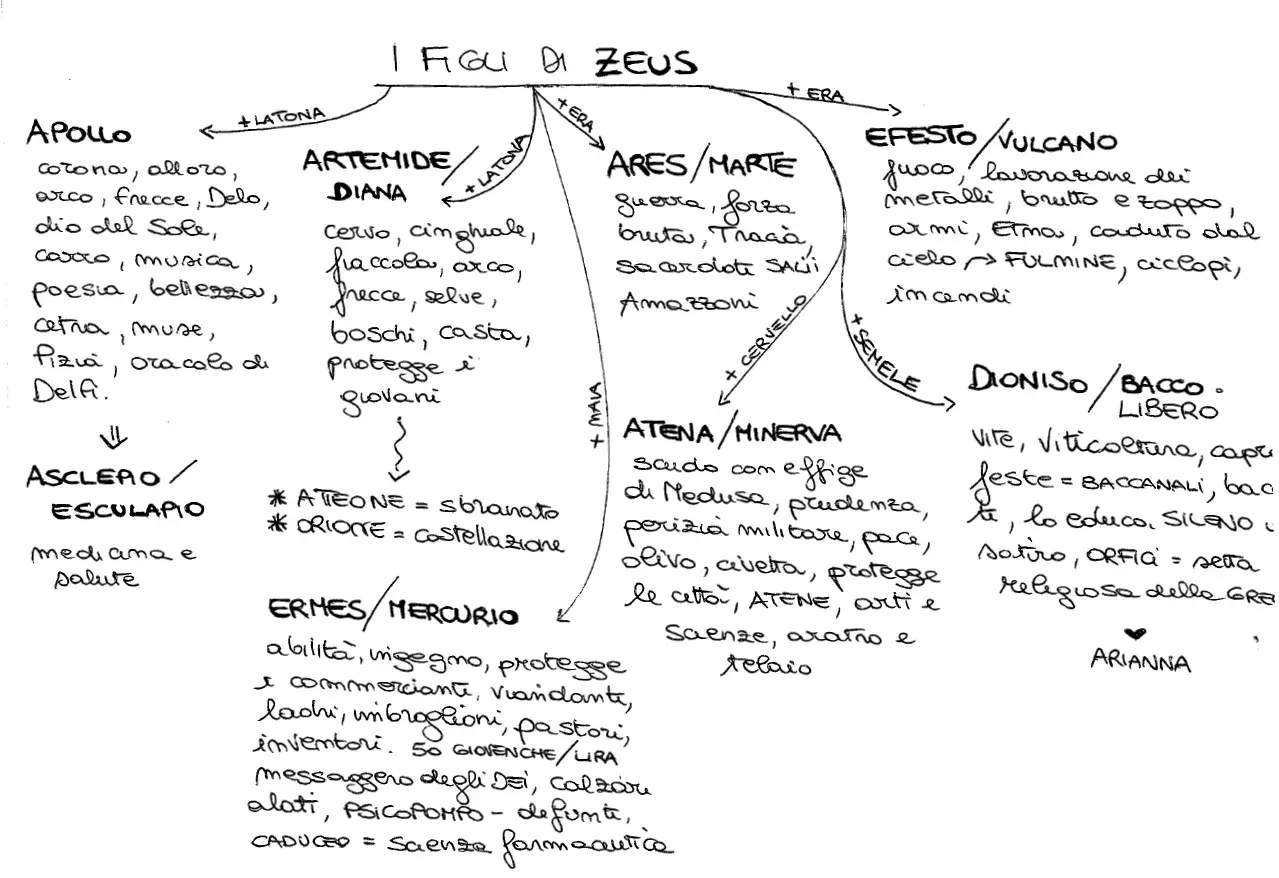 I FIGLI DI ZEUS
+ LATONA
APOLLO
corona, alloro,
arco, frecce, Delo,
dio del Sole,
carro, musica,
poesia, bellezza,
cetra, muse,
Pizia, oracolo di
Delfi.
⇓
ASCLEPIO /
ESCULAPIO
medicina e
salute
+ LATONA
ARTEMIDE /
DIANA
cervo, cinghiale,
fiaccola, arco,
frecce, selve,
boschi, casta,
protegge i
giovani
* ATTEONE = sbranato
* ORIONE = costellazione
+ MAIA
ERMES / MERCURIO
abilità, ingegno, protegge
i commercianti, viandanti,
ladri, imbroglioni, pastori,
inventori. 50 GIOVENCHE / LIRA
messaggero degli DEI, calzari
alati, PSICOPOMPO - defunti,
CADUCEO = scienza farmaceutica
+ ERA
ARES / MARTE
guerra, forza
bruta, Tracia,
sacerdoti SALII
Amazzoni
+ CERVELLO
ATENA / MINERVA
scudo con effige
di Medusa, prudenza,
perizia militare, pace,
olivo, civetta, protegge
le città, ATENE, arti e
scienze, aratro e
telaio
+ ERA
EFESTO / VULCANO
fuoco, lavorazione dei
metalli, brutto e zoppo,
armi, Etna, caduto dal
cielo → FULMINE, ciclopi,
incendi
+ SEMELE
DIONISO / BACCO -
LIBERO
vite, viticoltura, capr
feste = BACCANALI, bac
ti, lo educa SILENO
satiro, ORFICI = setta
religiosa della GRE
♥
ARIANNA